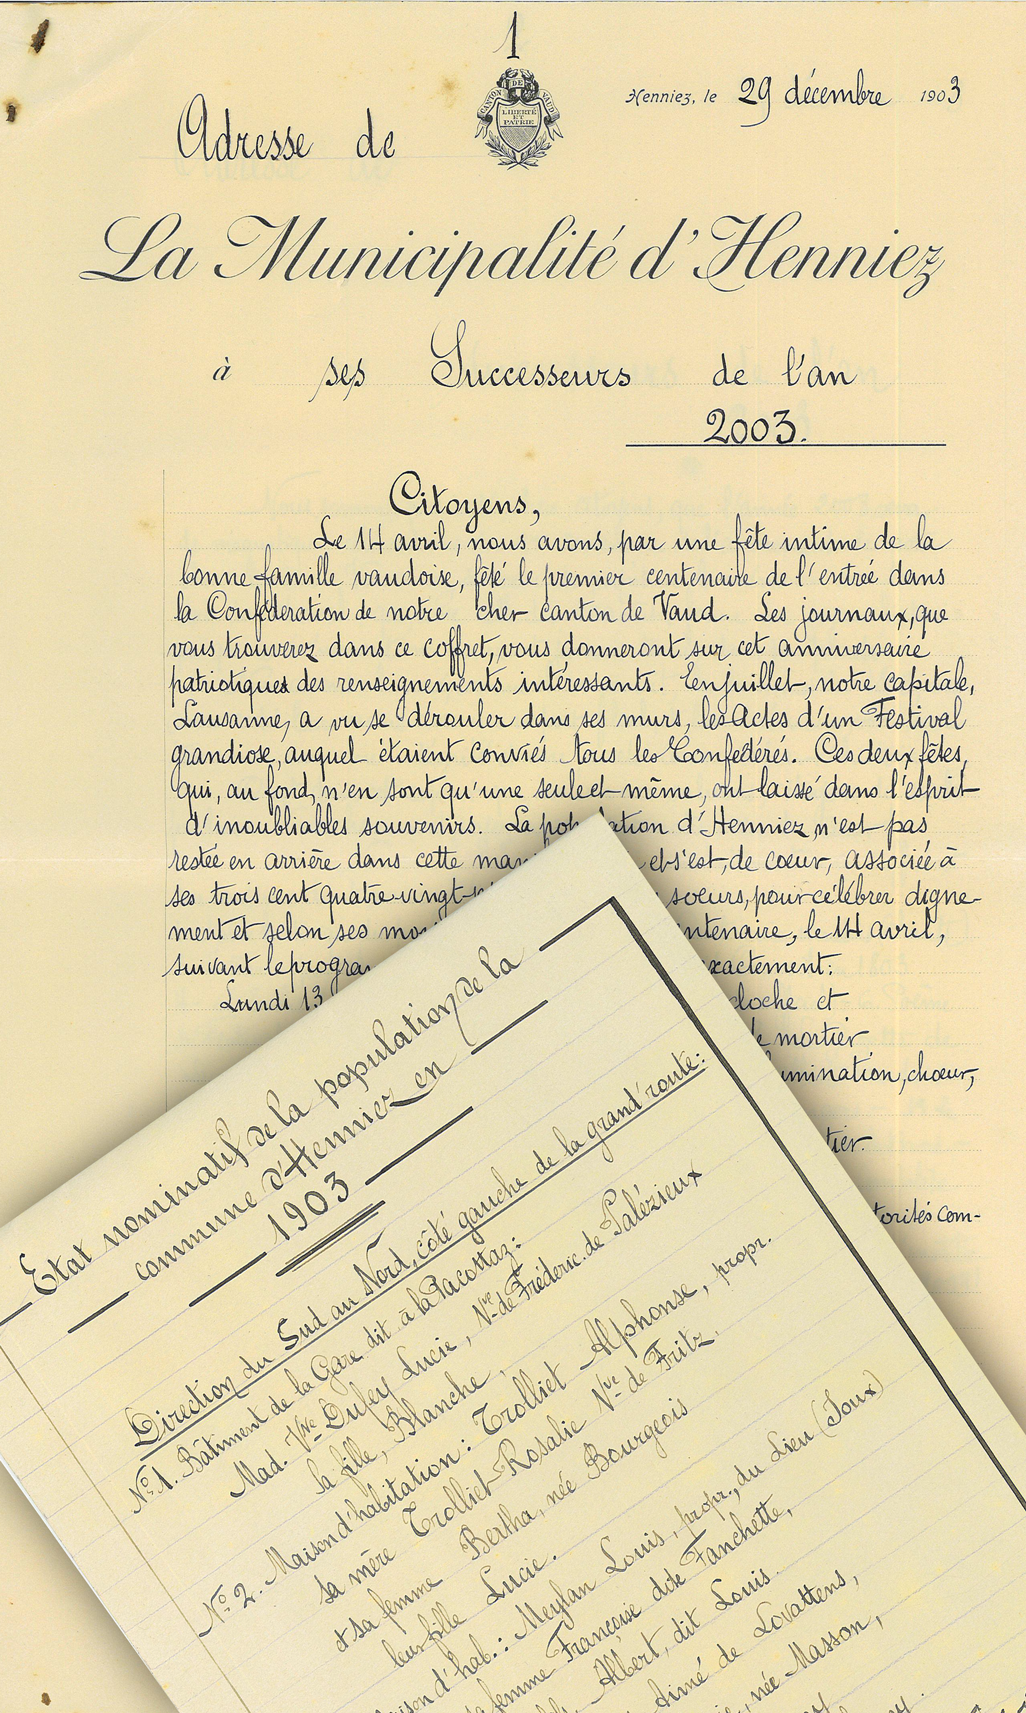 1
CANTON DE VAUD
LIBERTÉ
ET
PATRIE
Henniez, le 29 décembre 1903
Adresse de
La Municipalité d'Henniez
à ses Successeurs de l'an
2003.
Citoyens,
Le 14 avril, nous avons, par une fête intime de la
bonne famille vaudoise, fêté le premier centenaire de l'entrée dans
la Confédération de notre cher canton de Vaud. Les journaux, que
vous trouverez dans ce coffret, vous donneront sur cet anniversaire
patriotique des renseignements intéressants. En juillet, notre capitale,
Lausanne, a vu se dérouler dans ses murs, les Actes d'un Festival
grandiose, auquel étaient conviés tous les Confédérés. Ces deux fêtes,
qui, au fond, n'en sont qu'une seule et même, ont laissé dans l'esprit
d'inoubliables souvenirs. La ation d'Henniez n'est pas
restée en arrière dans cette et s'est, de cœur, associée à
ses trois cent quatre-vingt- sœurs, pour célébrer digne-
ment et selon ses ntenaire, le 14 avril,
suivant le progra xactement:
Lundi 13 cloche et
de mortier
umination, chœur,
tier.
torités com-
Etat nominatif de la population de la
commune d'Henniez en
1903
Direction du Sud au Nord, côté gauche de la grand'route:
No 1. Bâtiment de la Gare dit à la Pacottaz:
Mad. Vve Dufey Lucie, Nve de Fréderic de Palézieux
la fille, Blanche
No 2. Maison d'habitation: Trolliet Alphonse, propr.
sa mère Trolliet Rosalie Nve de Fritz,
et sa femme Bertha, née Bourgeois
leur fille Lucie.
ison d'hab.: Meylan Louis, propr., du Lieu (Joux)
femme Françoise dite Fanchette,
Albert, dit Louis.
Aimé de Lovattens,
née Masson,